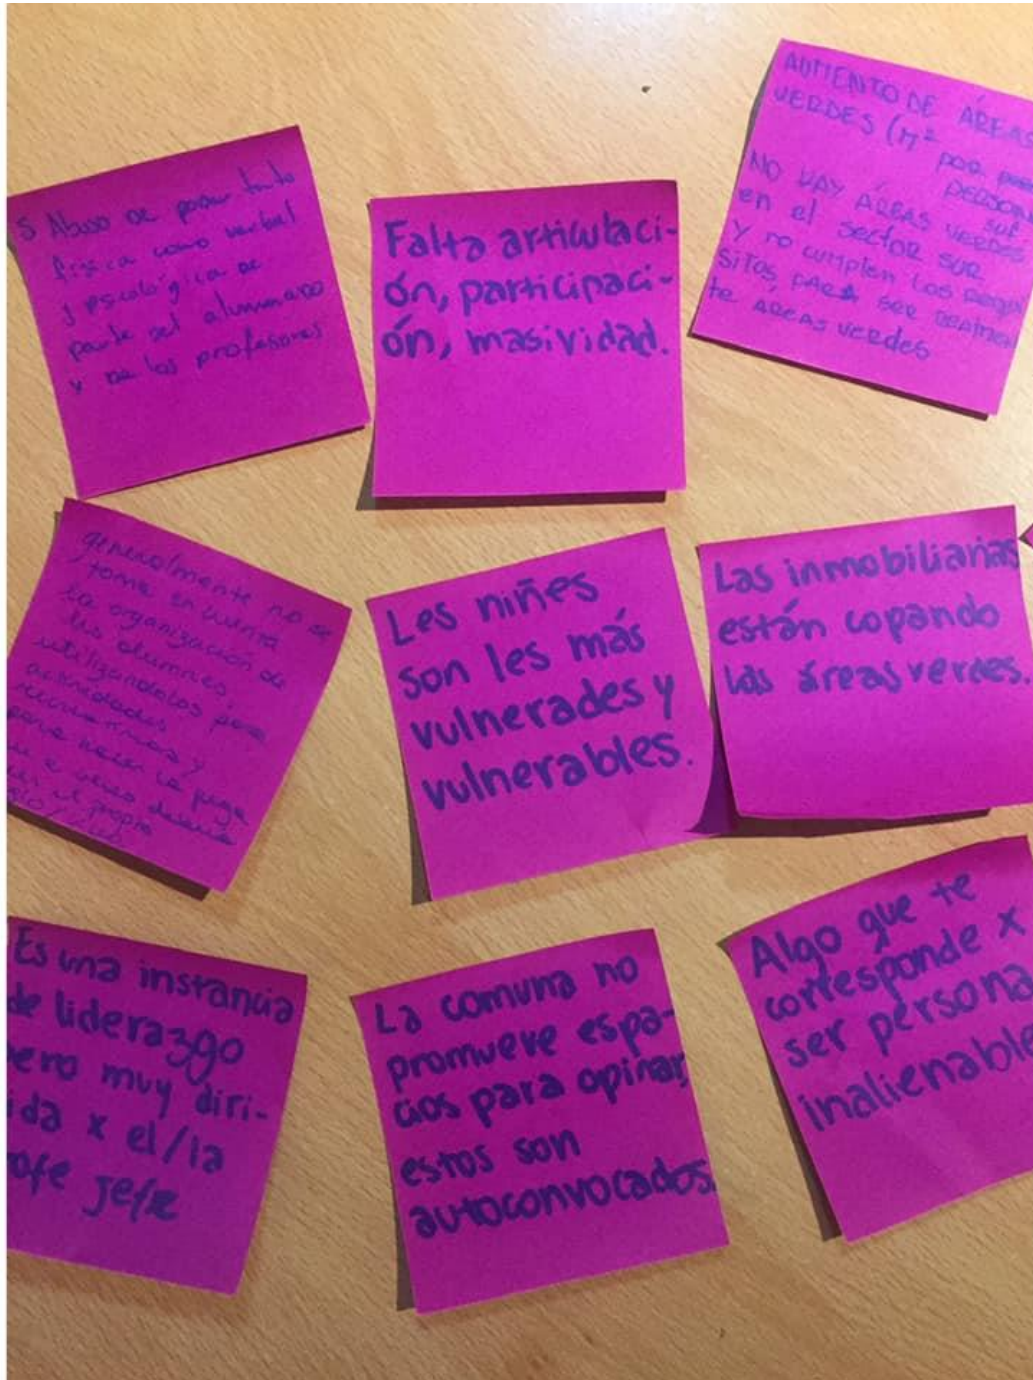 5 Abuso de poder tanto
física como verbal
y psicológica de
parte del alumnado
y de los profesores
Falta articulaci-
ón, participaci-
ón, masividad.
AUMENTO DE ÁREAS
VERDES (M² por
PERSON
NO HAY ÁREAS VERDES
en el sector sur
y no cumplen los requi
sitos, PARA SER REALMEN
te AREAS VERDES
generalmente no se
toma en cuenta
la organización de
les alumnes,
utilizandolos para
actividades
y
para hacer la pega
a veces
el propio
Les niñes
son les más
vulnerades y
vulnerables.
Las inmobiliarias
están copando
las áreas verdes.
Es una instancia
de liderazgo
ero muy diri-
ida x el/la
ofe jefe
La comuna no
promueve espa-
cios para opinar,
estos son
autoconvocados.
Algo que te
corresponde x
ser persona
inalienable